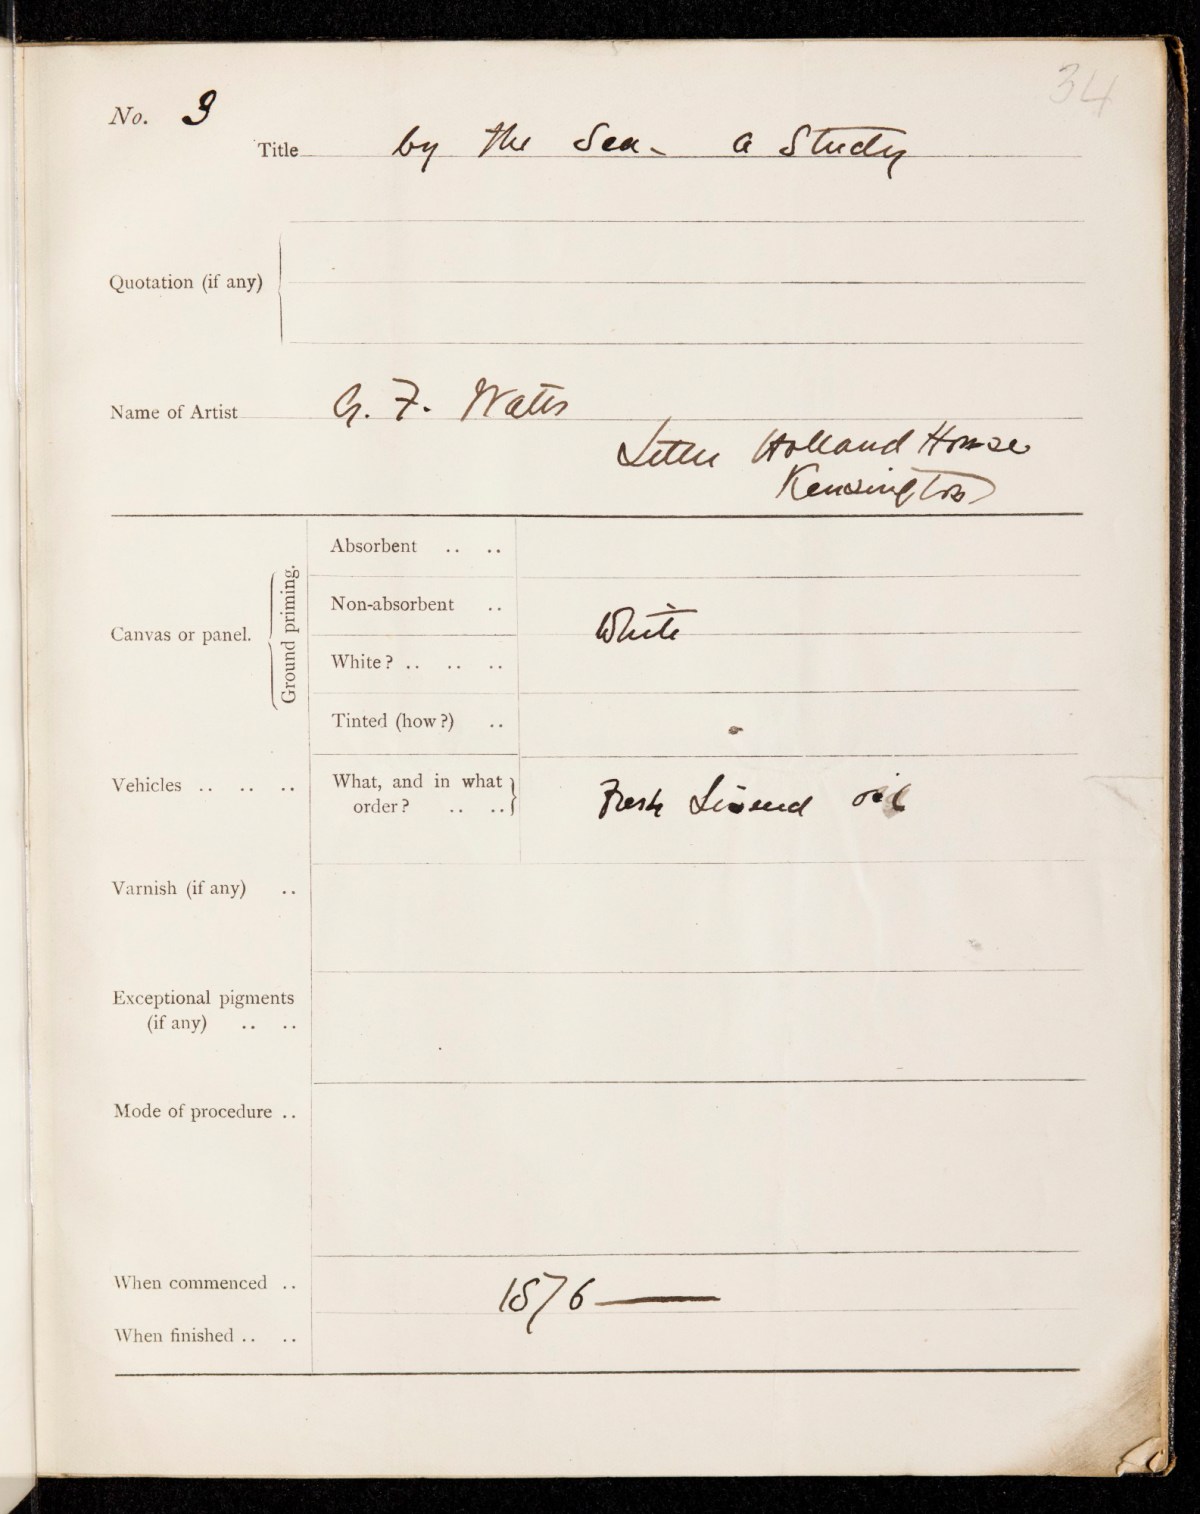 34
No. 3
Title by the Sea - a Study
Quotation (if any)
Name of Artist G. F. Watts
Little Holland House
Kensington
Canvas or panel.
Ground priming.
Absorbent .. ..
Non-absorbent ..
White
White? .. .. ..
Tinted (how?) ..
Vehicles .. .. .. What, and in what order? .. ..
Fresh Linseed oil
Varnish (if any) ..
Exceptional pigments
(if any) .. ..
Mode of procedure ..
When commenced .. 1876 —
When finished .. ..